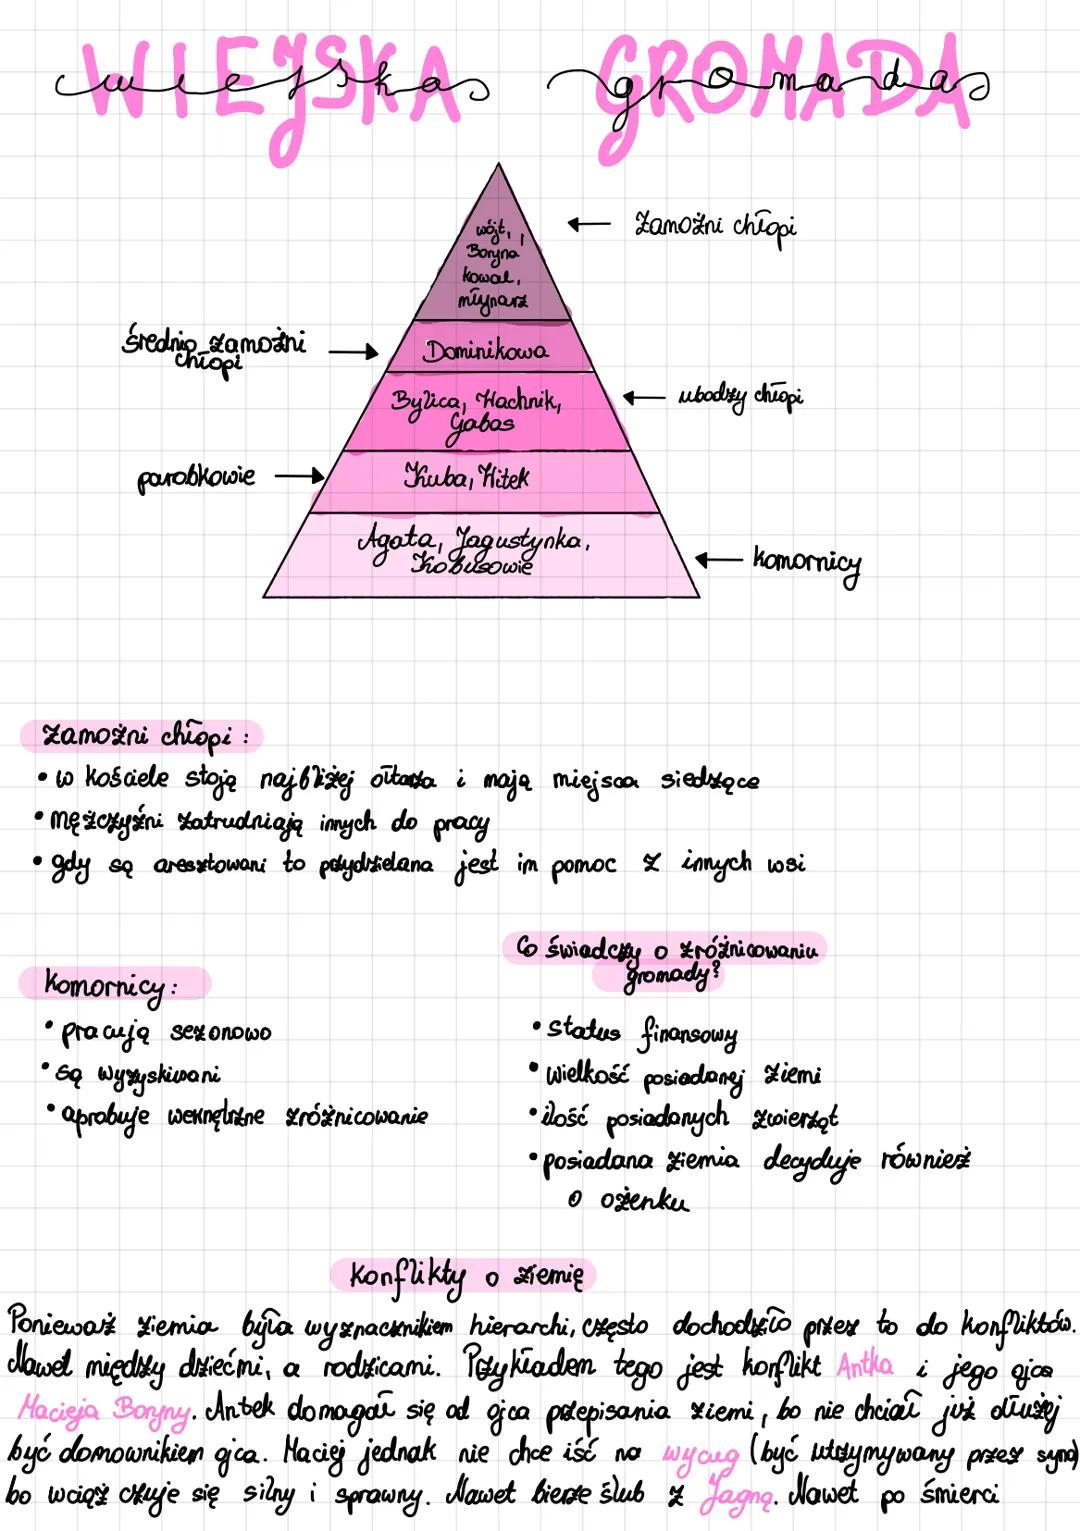 WIEJSKA GROMADA
wiejska gromada
wójt,
Boryna,
kowal,
młynarz
← Zamożni chłopi
średnio zamożni
chłopi →
Dominikowa
Bylica, Wachnik,
Gabas
← ubodzy chłopi
parobkowie →
Kuba, Witek
Agata, Jagustynka,
Kobusowie
← komornicy
Zamożni chłopi:
• w kościele stoją najbliżej ołtarza i mają miejsca siedzące
• mężczyźni zatrudniają innych do pracy
• gdy są aresztowani to przydzielana jest im pomoc z innych wsi
Komornicy:
• pracują sezonowo
• są wyzyskiwani
• aprobuje wewnętrzne zróżnicowanie
Co świadczy o zróżnicowaniu
gromady?
• status finansowy
• wielkość posiadanej ziemi
• ilość posiadanych zwierząt
• posiadana ziemia decyduje również
o ożenku
Konflikty o ziemię
Ponieważ ziemia była wyznacznikiem hierarchi, często dochodziło przez to do konfliktów.
Nawet między dziećmi, a rodzicami. Przykładem tego jest konflikt Antka i jego ojca
Macieja Boryny. Antek domagał się od ojca przepisania ziemi, bo nie chciał już dłużej
być domownikiem ojca. Maciej jednak nie chce iść na wycug (być utrzymywany przez syna)
bo wciąż czuje się silny i sprawny. Nawet bierze ślub z Jagną. Nawet po śmierci